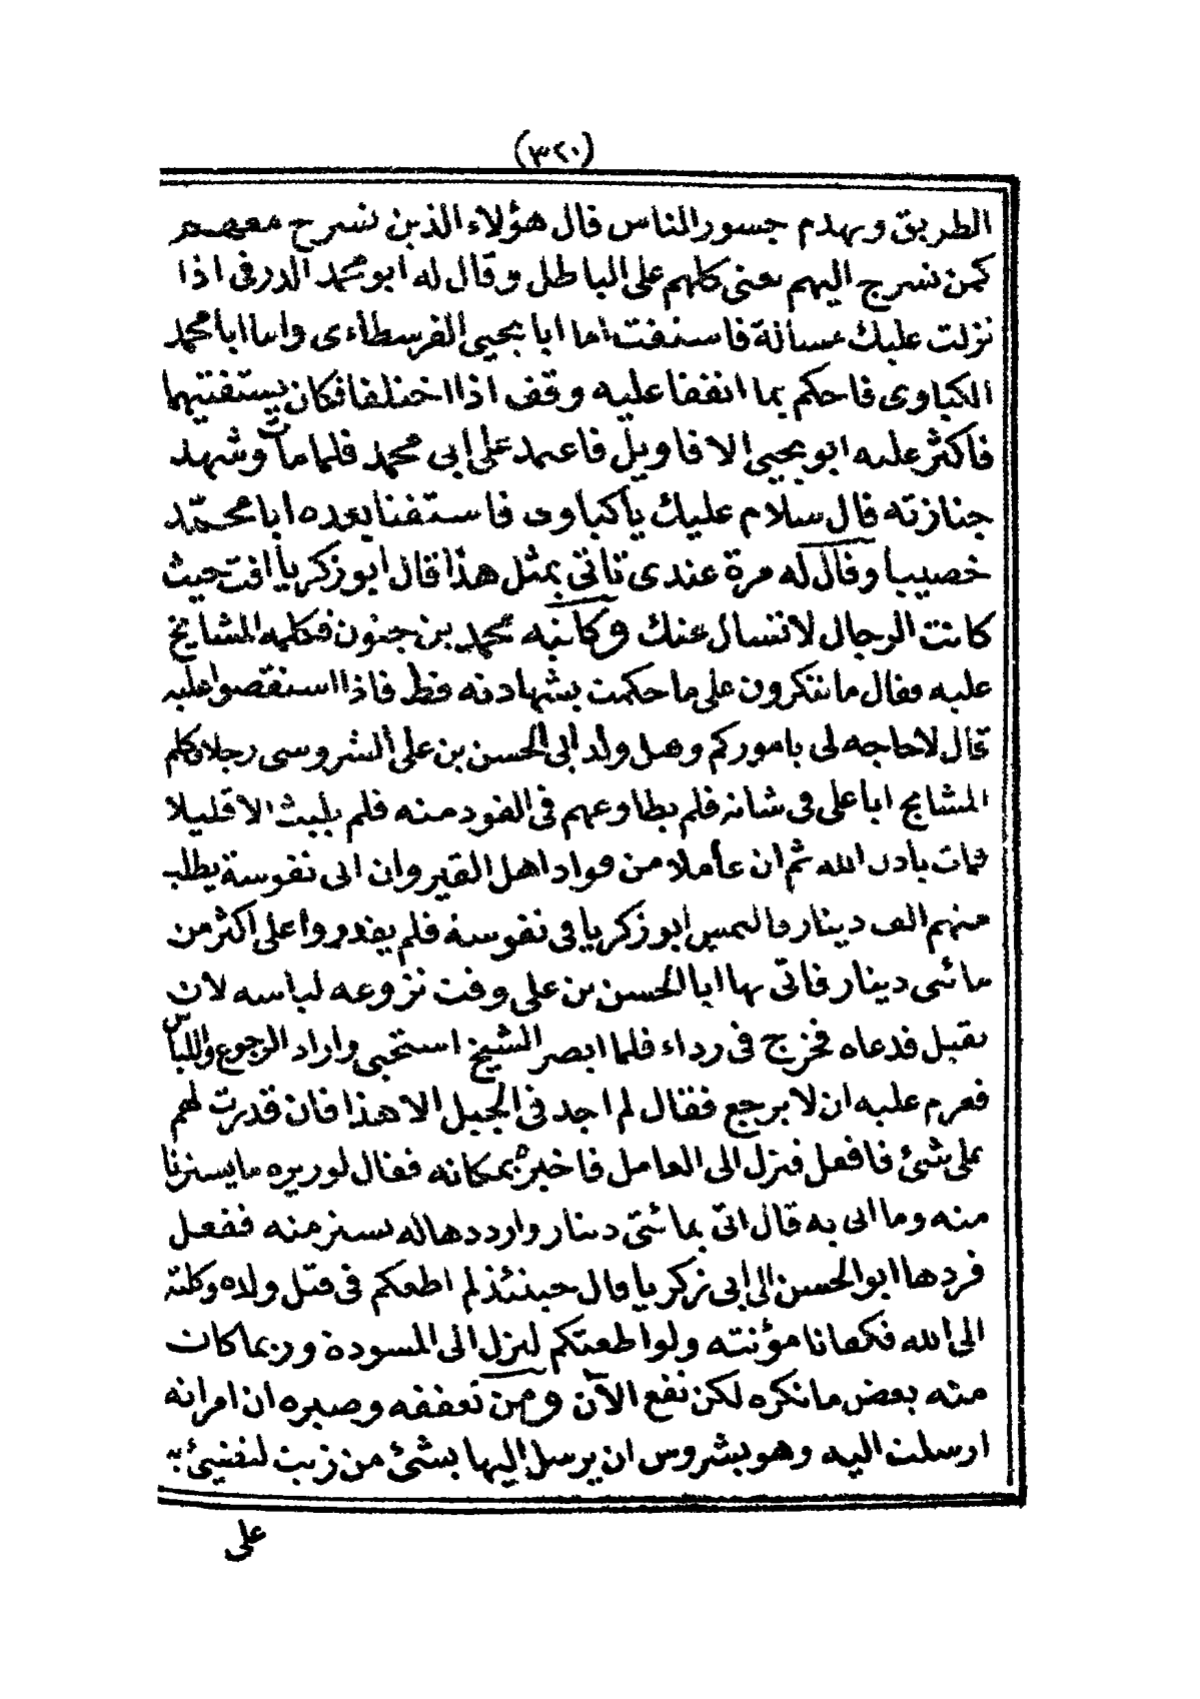 (٣٢٠)
الطريق ويهدم جسور الناس قال هؤلاء الذين نسرح معهم
كمن نسرح اليهم يعنى كلهم على الباطل وقال له ابو محمد الدرفى اذا
نزلت عليك مسالة فاستفت اما ابا يحيى الفرسطاءى واما ابا محمد
الكباوى فاحكم بما اتفقا عليه وقف اذا اختلفا فكان يستفتيهما
فاكثر عليه ابو يحيى الاقاويل فاعتمد على ابى محمد فلما مات وشهد
جنازته قال سلام عليك ياكباوى فاستفتا بعده ابا محمد
خصيبا وقال له مرة عندى تاتى بمثل هذا قال ابو زكريا افت حيث
كانت الرجال لا تسال عنك وكاتبه محمد بن جنون فكلمه المشايخ
عليه فقال ما تنكرون على ما حكمت بشهادته قط فاذا استنقصوا عليه
قال لاحاجه لى باموركم وقتل ولد ابى الحسن بن على الشروسى رجلا وكلم
المشايخ ابا على فى شانه فلم يطاوعهم فى القود منه فلم يلبث الا قليلا
فمات باذن الله ثم ان عاملا من قواد اهل القيروان اتى نفوسة يطلب
منهم الف دينار فالتمس ابو زكريا فى نفوسة فلم يقدروا على اكثر من
مائتى دينار فاتى بها ابا الحسن بن على وقت نزوعه لباسه لان
يقيل فدعاه فخرج فى رداء فلما ابصر الشيخ استحيى واراد الرجوع واللباس
فعزم عليه ان لا يرجع فقال لم اجد فى الجبل الا هذا فان قدرت لهم
على شئ فافعل فنزل الى العامل فاخبره بمكانه فقال لوزيره ما يسترنا
منه وما اتى به قال اتى بمائتى دينار وارددها له نستر منه ففعل
فردها ابو الحسن الى ابى زكريا وقال حينئذ لم اطعكم فى قتل ولده وكلته
الى الله فكفانا مؤنته ولو اطعتكم لنزل الى المسودة وربما كان
منه بعض ما نكره لكن نفع الآن ومن تعففه وصبره ان امراته
ارسلت اليه وهو بشروس ان يرسل اليها بشئ من زيت لتفتئ به
على